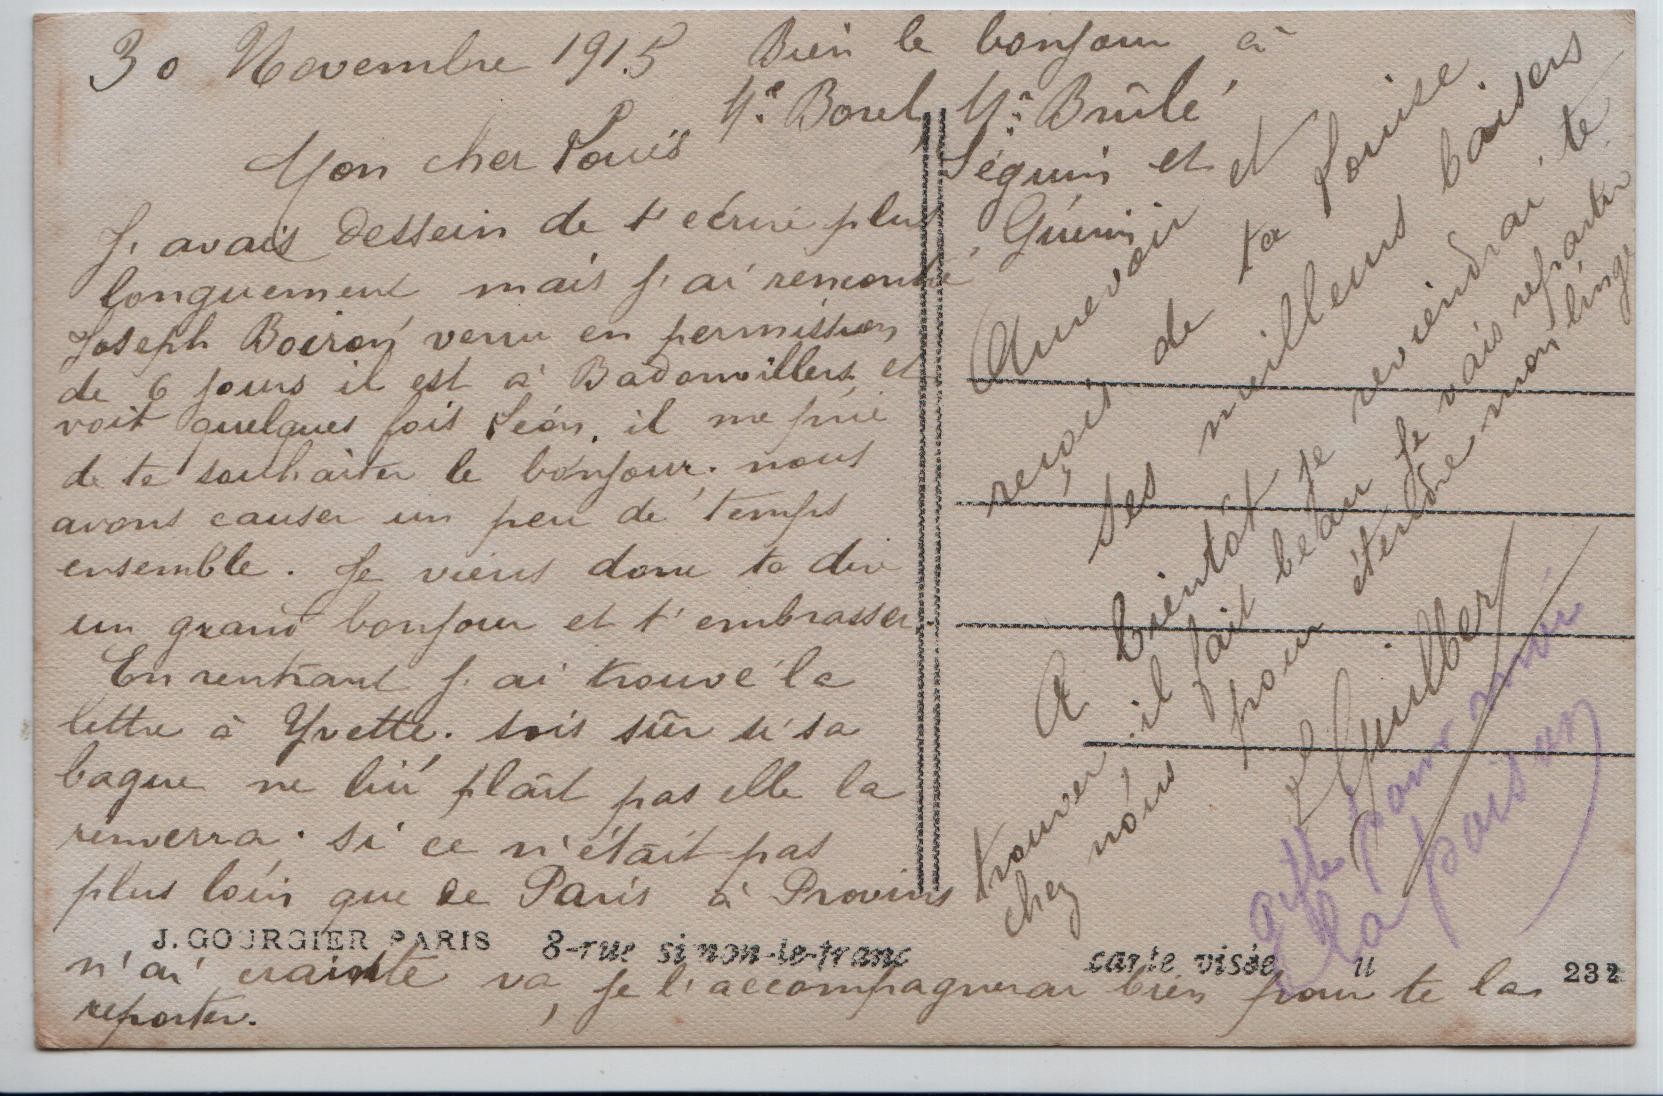 30 Novembre 1915
Mon cher Louis
J'avais dessein de t'écrire plus
longuement mais j'ai rencontré
Joseph Boiron venu en permission
de 6 jours il est à Badonvillers et
voit quelques fois Léon. il me prie
de te souhaiter le bonjour. nous
avons causer un peu de temps
ensemble. Je viens donc te dire
un grand bonjour et t'embrasser.
En rentrant j'ai trouvé la
lettre à Yvette. sois sûr si sa
bague ne lui plait pas elle la
renverra. si ce n'était pas
plus loin que de Paris à Provins
n'ai crainte va, je l'accompagnerai bien pour te la
reporter.
Bien le bonjour à
Mr Borel, Mr Brûlé
Séguin et
Guérin
Aurevoir et
reçoit de ta Louise
ses meilleurs baisers
A bientôt je reviendrai te
trouver. il fait beau je vais repartir
chez nous pour étendre mon linge
L Guilbert
la paison
J. GOURGIER PARIS 8-rue simon-le-franc carte visée 232